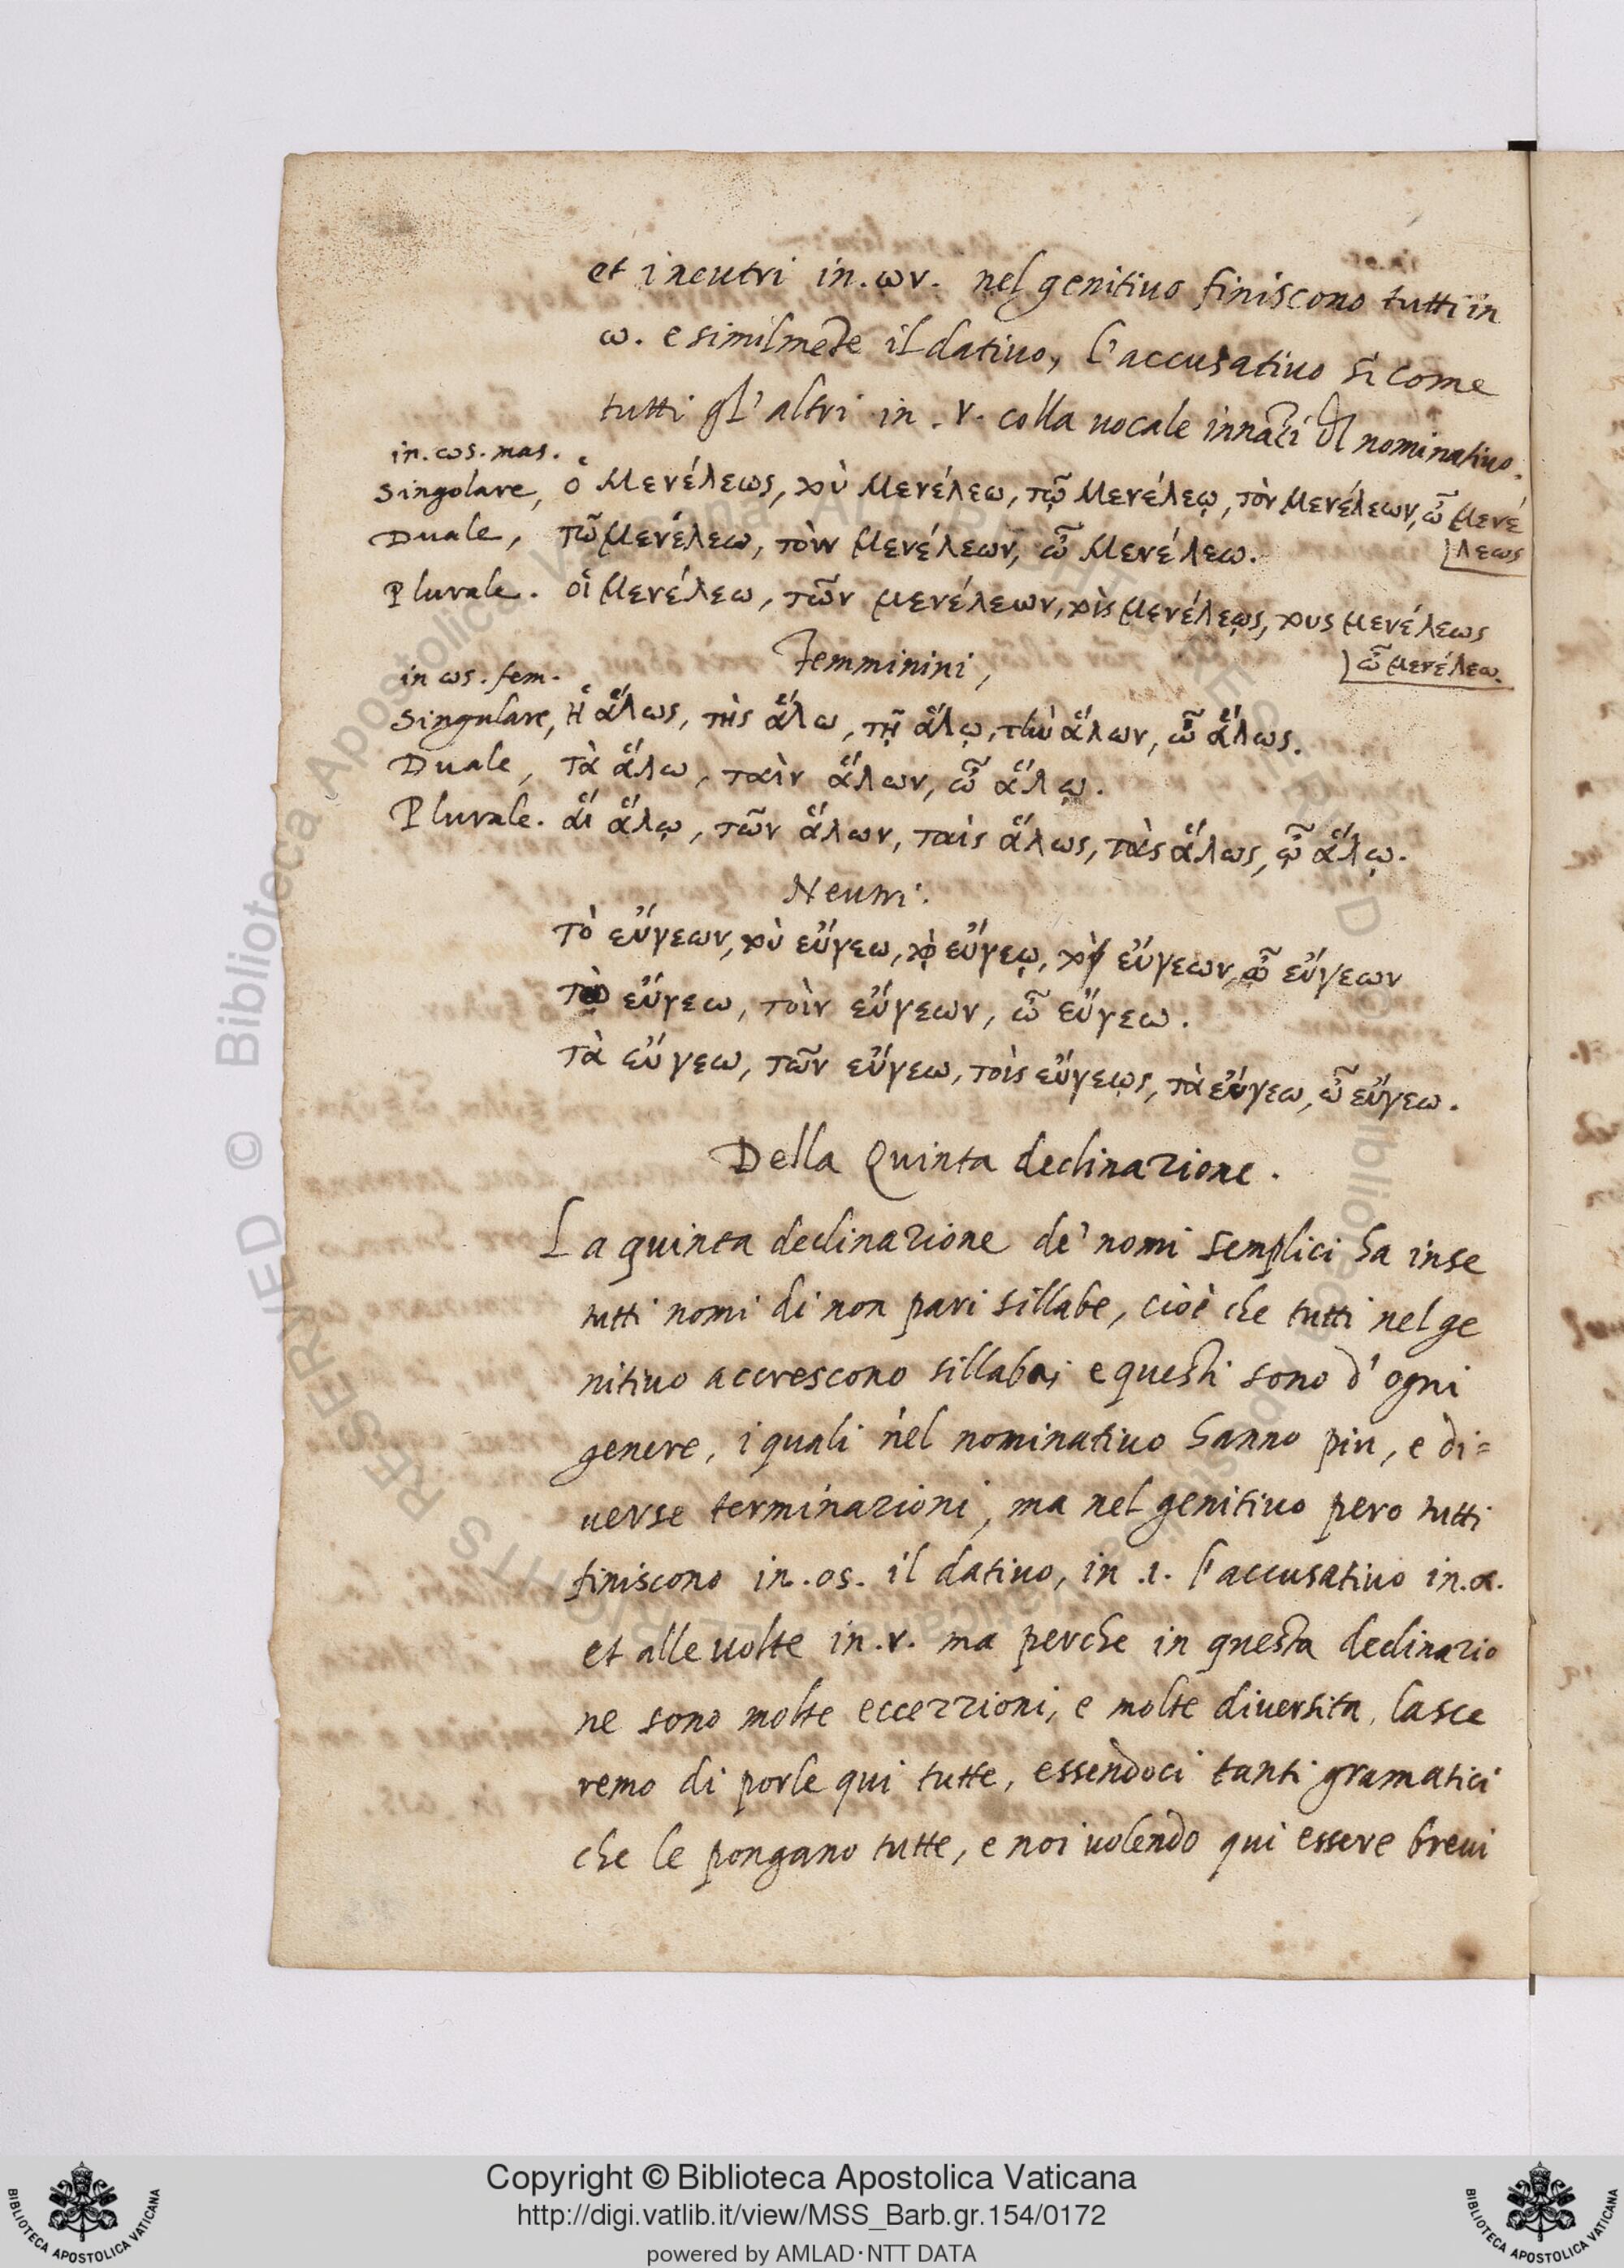 et i neutri in. ων. nel genitiuo finiscono tutti in
ω. e similmēte il dativo, l'accusatiuo si come
tutti gl'altri in .ν. colla uocale innāzi dl nominatiuo.
in. ως. mas.
Singolare, ὁ Μενέλεως, τοὺ Μενέλεω, τῷ Μενέλεῳ, τὸν Μενέλεων, ὦ Μενέ
λεως
Duale, τῶ Μενέλεω, τοὶν Μενέλεων, ὦ Μενέλεω.
Plurale. οἱ Μενέλεω, τῶν μενέλεων, τοὶς μενέλεῳς, τους μενέλεως
ὦ μενέλεω.
Femminini,
in ως. fem.
Singulare, ἡ ἅλως, τὴς ἅλω, τῇ ἅλῳ, τὴν ἅλων, ὦ ἅλως.
Duale, τὰ ἅλω, ταὶν ἅλων, ὦ ἅλῳ.
Plurale. αἵ ἅλῳ, τῶν ἅλων, ταὶς ἅλως, τὰς ἅλως, ᾦ ἅλῳ.
Neutri.
τὸ εὔγεων, τοὺ εὔγεω, τῲ εὔγεῳ, τὸ εὔγεων, ᾦ εὔγεων
τὼ εὔγεω, τοὶν εὔγεων, ὦ εὔγεω.
τὰ εὔγεω, τῶν εὔγεω, τοὶς εὔγεῳς, τὰ εὔγεω, ὦ εὔγεω.
Della Quinta declinazione.
La quinta declinazione de' nomi semplici ha in se
tutti nomi di non pari sillabe, cioè che tutti nel ge
nitiuo accrescono sillaba; e questi sono d'ogni
genere, i quali nel nominatiuo hanno piu, e di=
uerse terminazioni, ma nel genitiuo pero tutti
finiscono in .ος. il datiuo, in .ι. l'accusatiuo in .α.
et alle uolte in .ν. ma perche in questa declinazio
ne sono molte eccezzioni, e molte diuersita, lasce
remo di porle qui tutte, essendoci tanti gramatici
che le pongano tutte, e noi uolendo qui essere breui
© Biblioteca Apostolica Vaticana ALL RIGHTS RESERVED
Copyright © Biblioteca Apostolica Vaticana
http://digi.vatlib.it/view/MSS_Barb.gr.154/0172
powered by AMLAD·NTT DATA
BIBLIOTECA APOSTOLICA VATICANA
BIBLIOTECA APOSTOLICA VATICANA